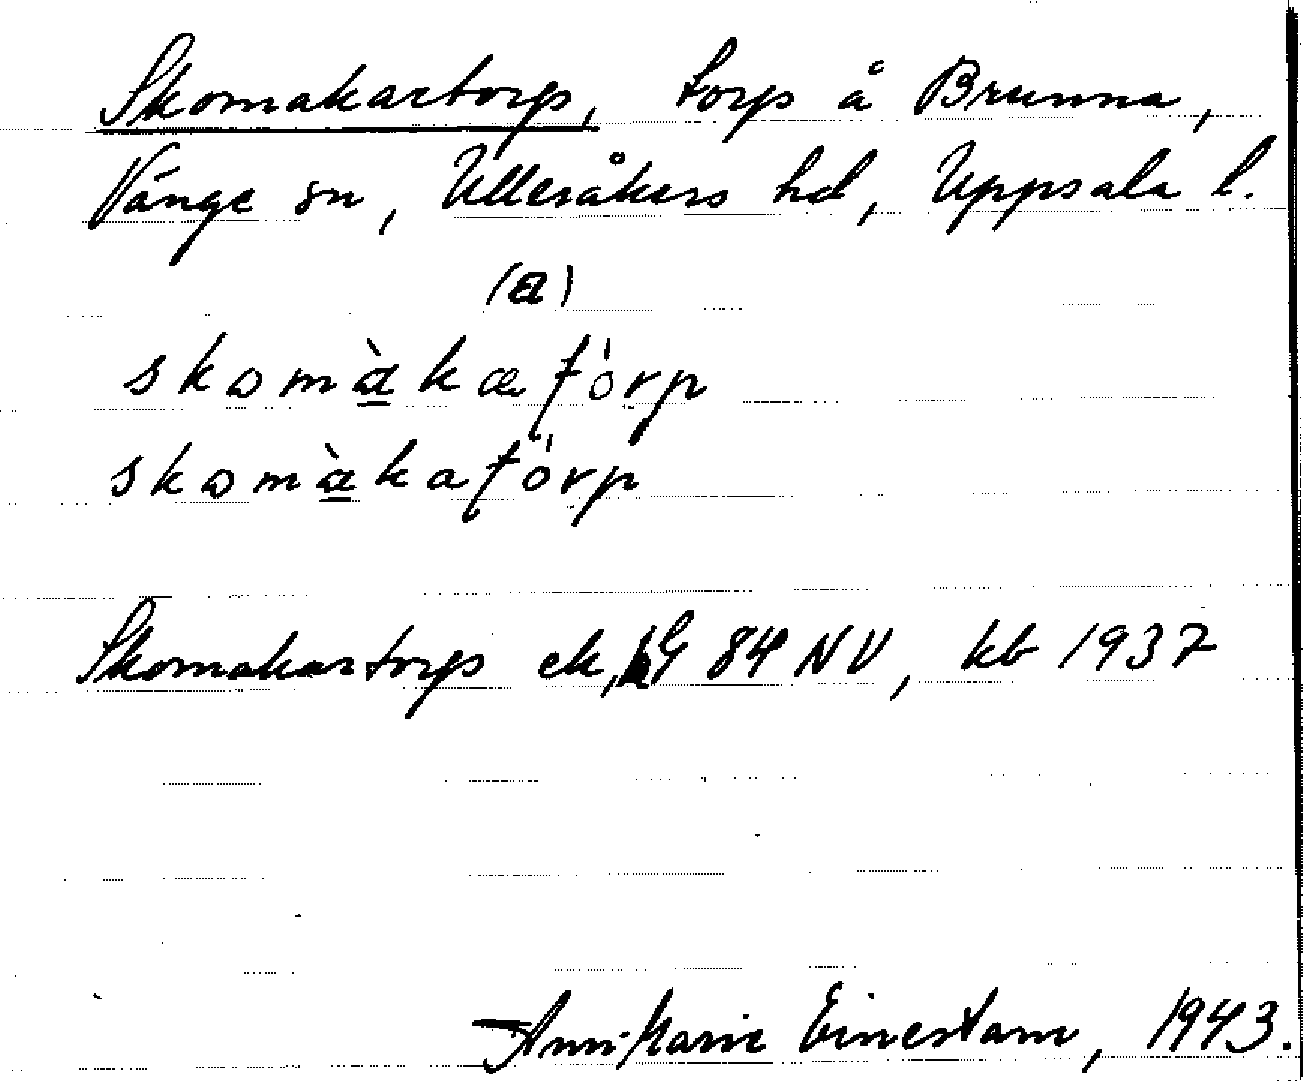 Skomakartorp, torp å Brunna,
Vänge sn, Ulleråkers hd, Uppsala l.
(a)
skomàkaƭórp
skomàkaƭórp
Skomakartorp ek, 84 NV, kb 1937
Ann-Marie Einestam, 1943.